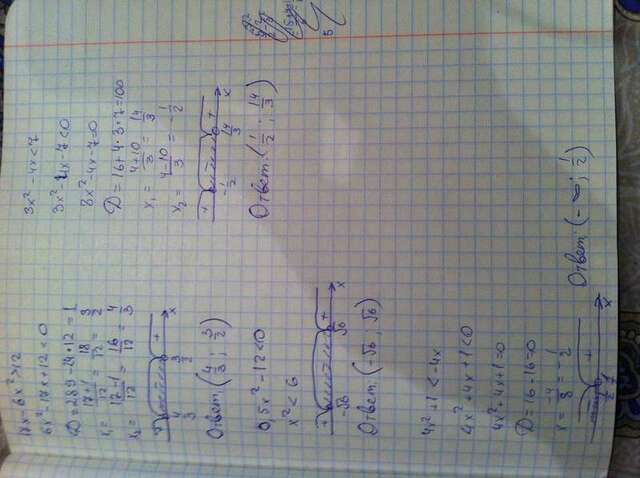 17x - 6x² > 12
6x² - 17x + 12 < 0
D = 289 - 24·12 = 1
x₁ = (17+1)/12 = 18/12 = 3/2
x₂ = (17-1)/12 = 16/12 = 4/3
+ - +
4/3 3/2 x
Ответ: (4/3; 3/2)
0,5x² - 12 < 0
x² < 6
+ - +
-√6 √6 x
Ответ: (-√6; √6)
4x² + 1 < -4x
4x² + 4x + 1 < 0
4x² + 4x + 1 = 0
D = 16 - 16 = 0
x = -4/8 = -1/2
- +
x
Ответ: (-∞; 1/2)
3x² - 4x < 7
3x² - 4x - 7 < 0
3x² - 4x - 7 = 0
D = 16 + 4·3·7 = 100
x₁ = (4+10)/3 = 14/3
x₂ = (4-10)/3 = -1/2
+ - +
-1/2 14/3 x
Ответ: (1/2; 14/3)
5